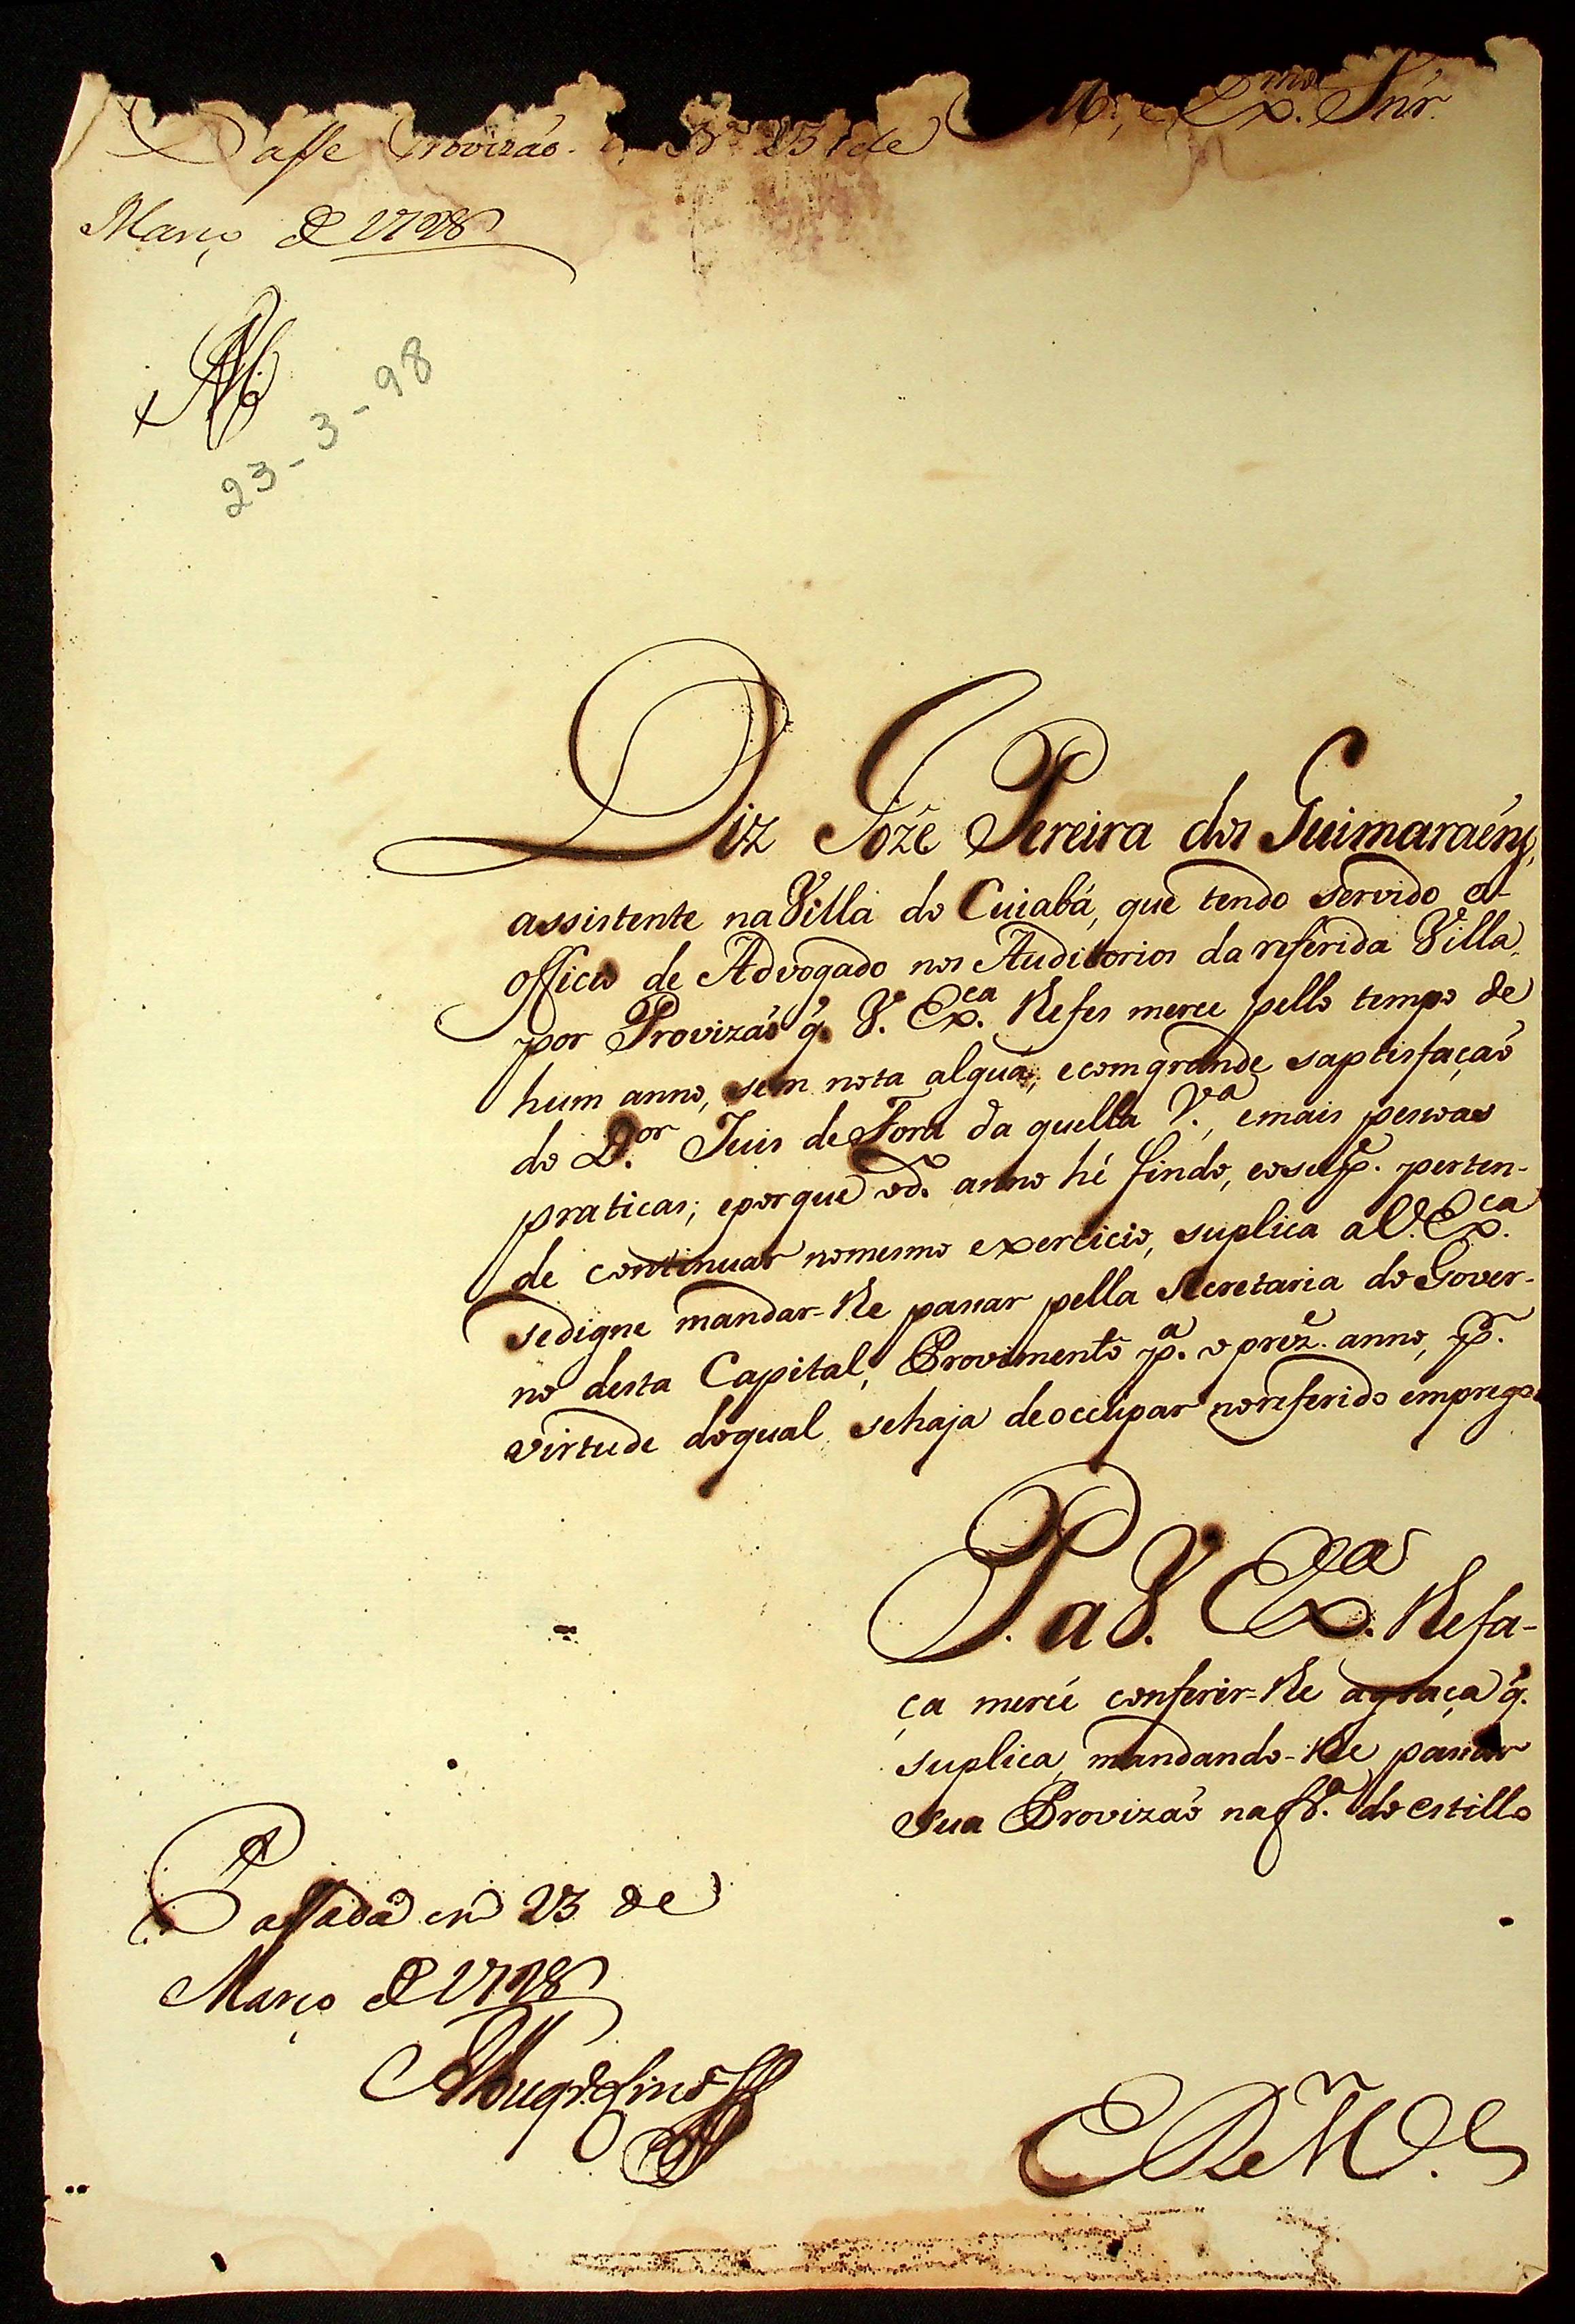 Passe Provizaõ. 23 de
Março de 1798
Ex.mo Snr.
23-3-98
Diz Joze Pereira dos Guimaraẽns,
assistente na Villa do Cuiabá, que tendo servido o
officio de Advogado nos Auditorios da referida Villa,
por Provizaõ q̃ V. Ex.ca lhe fes merce pello tempo de
hum anno, sem nota alguã, e com grande saptisfaçaõ
do D.or Juis de Fora da quella V.a, e mais pessoas
praticas; e porque o d.o anno hé findo, e o sup.e perten-
de continuar no mesmo exercicio, suplica a V. Ex.ca
se digne mandar-lhe passar pella secretaria do Gover-
no desta Capital, Provimento p.a o prez.e anno, p.r
virtude do qual se haja de occupar no referido emprego
P. a V. Ex.ca lhe fa-
ça mercé conferir-lhe a graça q̃.
suplica, mandando-lhe passar
sua Provizaõ na fr.a do estillo
Passada em 23 de
Março de 1798
E R M.ce